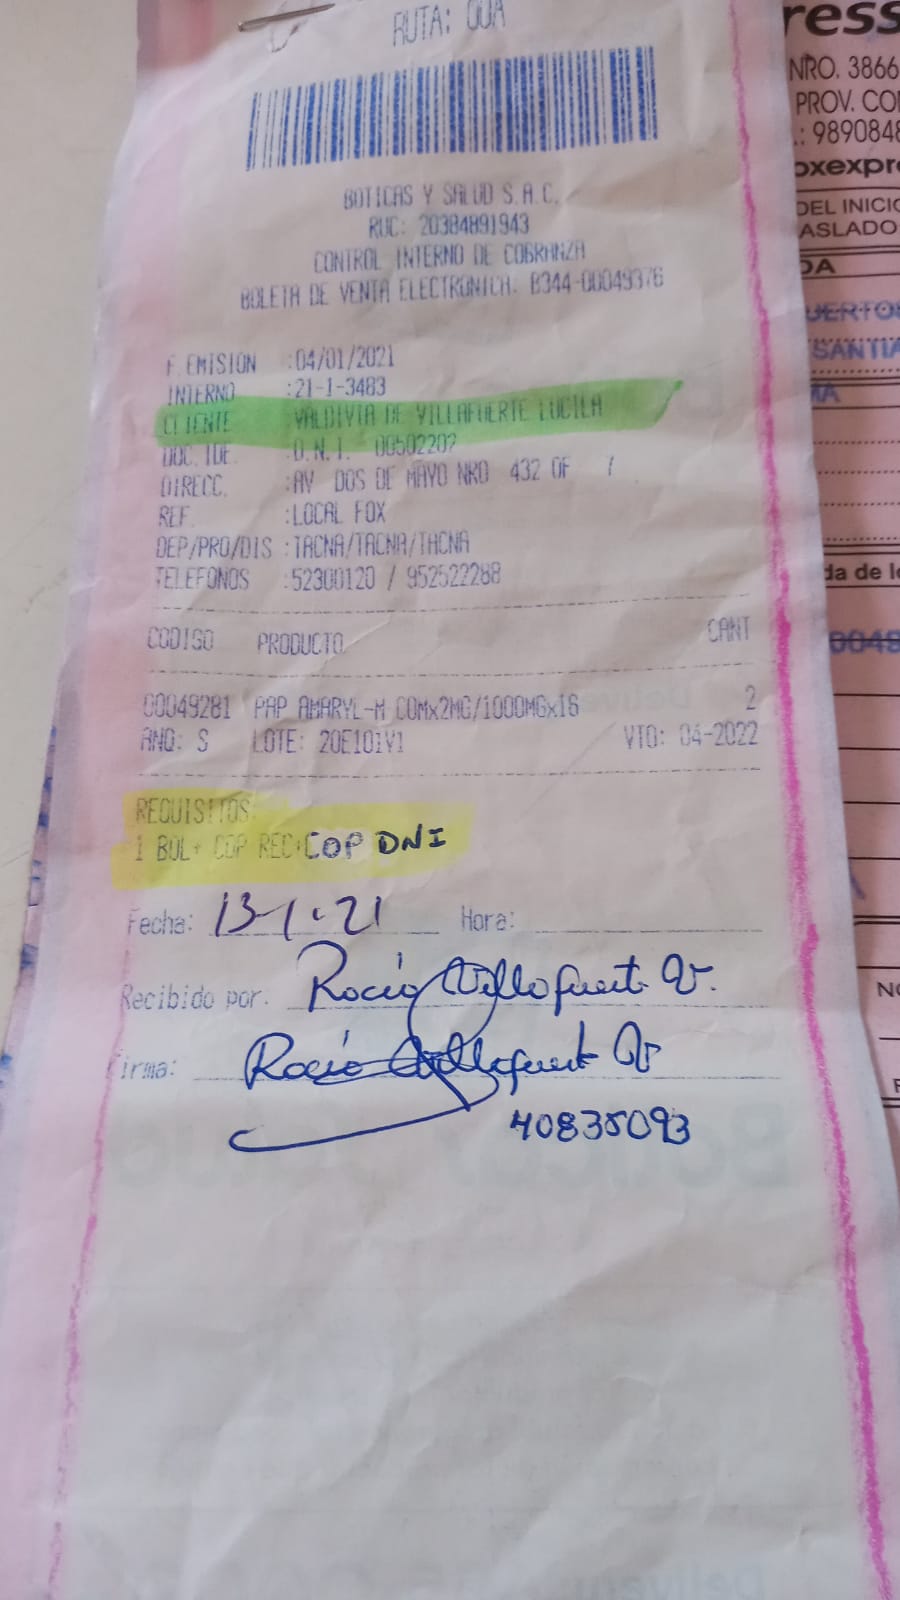 RUTA: OUA
BOTICAS Y SALUD S.A.C.
RUC: 20384891943
CONTROL INTERNO DE COBRANZA
BOLETA DE VENTA ELECTRONICA: B344-00049376
F.EMISION :04/01/2021
INTERNO :21-1-3483
CLIENTE VALDIVIA DE VILLAFUERTE LUCILA
DOC.IDE. :D.N.I. 00502202
DIRECC. :AV DOS DE MAYO NRO 432 OF 7
REF. :LOCAL FOX
DEP/PRO/DIS :TACNA/TACNA/TACNA
TELEFONOS :52300120 / 952522288
CODIGO PRODUCTO CANT
00049281 PAP AMARYL-M COMx2MG/1000MGx16 2
ANQ: S LOTE: 20E101V1 VTO: 04-2022
REQUISITOS:
1 BOL+ COP REC+COP DNI
Fecha: 13-1-21 Hora:
Recibido por. Rocio Villafuert V.
Firma: Rocio Villafuert V
40835093
ress
NRO. 3866
PROV. CO
.: 9890848
oxexpr
DEL INICIO
ASLADO
DA
UERTO
SANTIA
MA
da de l
0048